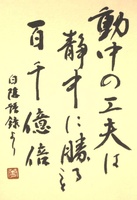 動中の工夫は
静中に勝る
百千億倍
白隠語録より